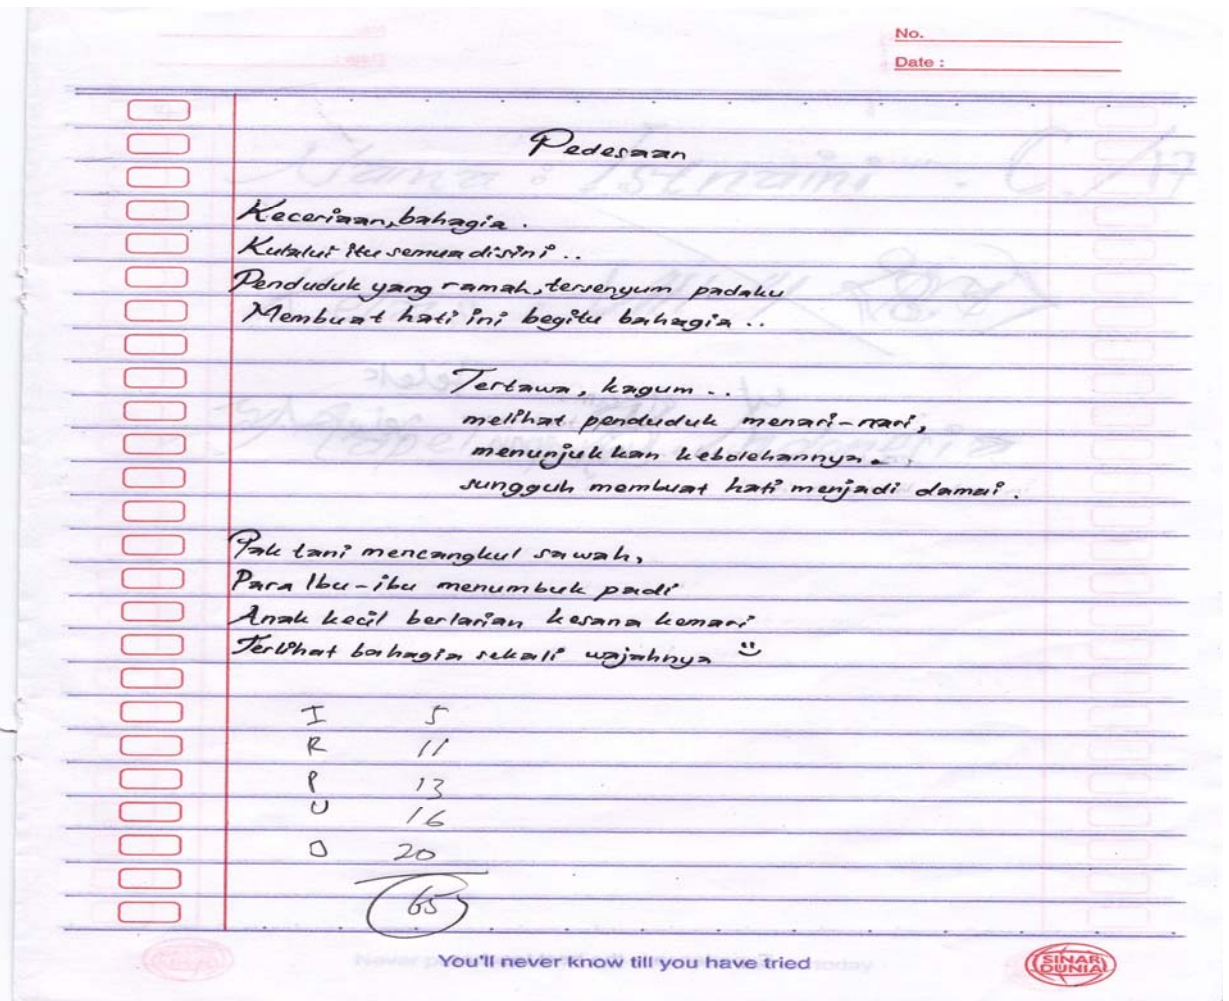 No.
Date :
Pedesaan
Keceriaan, bahagia.
Kulalui itu semua disini..
Penduduk yang ramah, tersenyum padaku
Membuat hati ini begitu bahagia..
Tertawa, kagum..
melihat penduduk menari-nari,
menunjukkan kebolehannya..
sungguh membuat hati menjadi damai.
Pak tani mencangkul sawah,
Para Ibu-ibu menumbuk padi
Anak kecil berlarian kesana kemari
Terlihat bahagia sekali wajahnya
I 5
R 11
P 13
U 16
O 20
65
You'll never know till you have tried
SINAR DUNIA